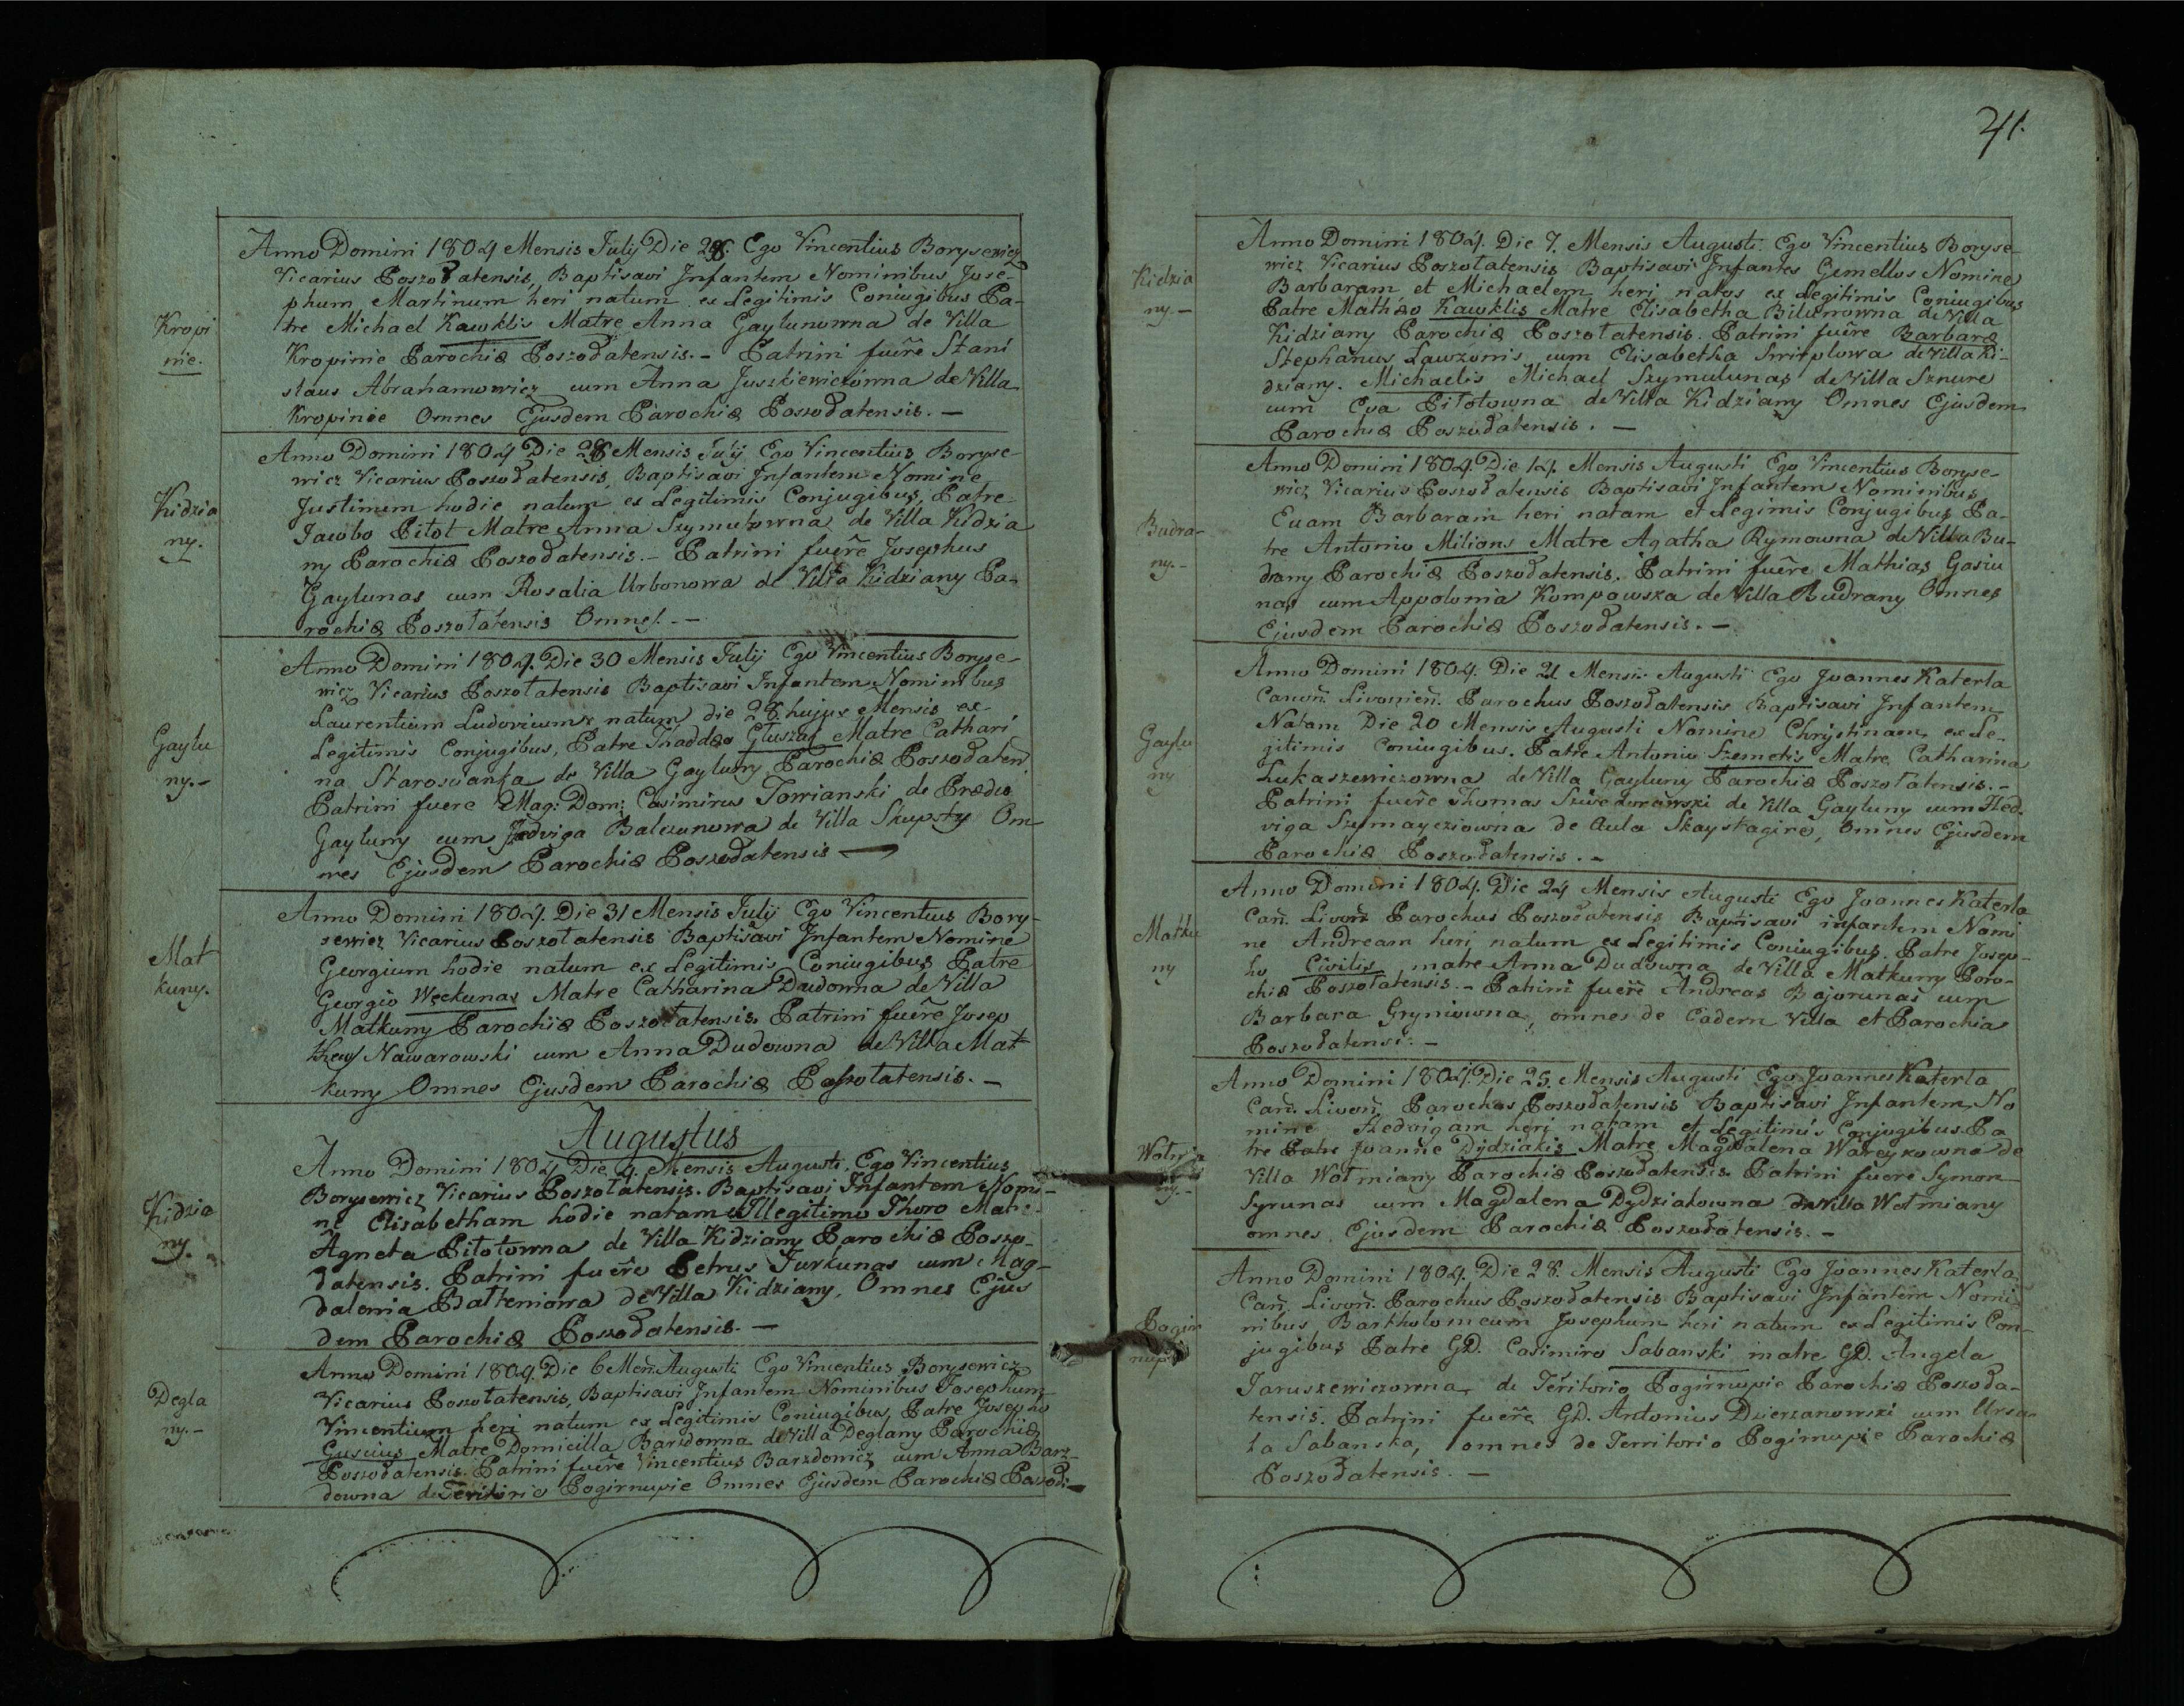 Kropi
nie.
Anno Domini 1804 Mensis Julij Die 28. Ego Vincentius Borysewicz
Vicarius Poszołatensis, Baptisavi Infantem Nominibus Jose-
phum, Martinum heri natum ex Legitimis Coniugibus Pa-
tre Michael Kawklis Matre Anna Gaylunowna de Villa
Kropinie Parochiæ Poszołatensis.- Patrini fuere Stani
slaus Abrahamowicz cum Anna Juszkiewiczowna de Villa
Kropinie Omnes Ejusdem Parochiæ Poszołatensis. -
Kidzia
ny.
Anno Domini 1804 Die 28 Mensis Julij Ego Vincentius Boryse-
wicz Vicarius Poszołatensis, Baptisavi Infantem Nomine
Justinum hodie natum ex Legitimis Conjugibus, Patre
Jacobo Pitot Matre Anna Szymulowna de Villa Kidzia
ny Parochiæ Poszołatensis.- Patrini fuere Josephus
Gaylunas cum Rosalia Urbonowa de Villa Kidziany Pa-
rochiæ Poszołatensis Omnes. -
Gaylu
ny.-
Anno Domini 1804. Die 30 Mensis Julij Ego Vincentius Boryse-
wicz Vicarius Poszołatensis Baptisavi Infantem Nominibus
Laurentium Ludovicum natum die 28. hujus Mensis ex
Legitimis Conjugibus, Patre Thaddæo Gluszag Matre Cathari
na Staroswanka de Villa Gayluny Parochiæ Poszołaten
Patrini fuere Mag: Dom: Casimirus Towianski de Prædio
Gayluny cum Jadviga Balczunowa de Villa Skupsty Om-
nes Ejusdem Parochiæ Poszołatensis -
Mat
kuny.
Anno Domini 1804. Die 31 Mensis Julij Ego Vincentius Bory-
sewicz Vicarius Poszołatensis Baptisavi Infantem Nomine
Georgium hodie natum ex Legitimis Coniugibus Patre
Georgio Węckunas Matre Catharina Dudowna de Villa
Matkuny Parochiæ Poszołatensis. Patrini fuere Josep
hus Nawarowski cum Anna Dudowna de Villa Mat
kuny Omnes Ejusdem Parochiæ Poszołatensis. -
Augustus
Kidzia
ny.
Anno Domini 1804 Die 4. Mensis Augusti. Ego Vincentius
Borysewicz Vicarius Poszołatensis. Baptisavi Infantem Nomi-
ne Elisabetham hodie natam Illegitimo Thoro Matre
Agneta Pitotowna de Villa Kidziany Parochiæ Poszo-
łatensis. Patrini fuere Petrus Turkunas cum Mag-
dalenia Balteniowa de Villa Kidziany. Omnes Ejus
dem Parochiæ Poszołatensis. -
Degla
ny.-
Anno Domini 1804. Die 6 Men. Augusti Ego Vincentius Borysewicz
Vicarius Poszołatensis, Baptisavi Infantem Nominibus Josephum
Vincentium heri natum ex Legitimis Coniugibus, Patre Josepho
Gusiius Matre Domicilla Barzdowna de Villa Deglany Parochiæ
Poszołatensis. Patrini fuere Vincentius Barzdowicz cum Anna Barz-
downa de Teritorio Pogirnupie Omnes Ejusdem Parochiæ Poszoł-
41.
Kidzia
ny.-
Anno Domini 1804. Die 7. Mensis Augusti. Ego Vincentius Boryse-
wicz Vicarius Poszołatensis Baptisavi Infantes Gemellos Nomine
Barbaram et Michaelem heri natos ex Legitimis Coniugibus
Patre Mathæo Kawklis Matre Elisabetha Bilunowna de Villa
Kidziany Parochiæ Poszołatensis. Patrini fuere Barbaræ
Stephanus Lawzonis cum Elisabetha Smitplowa de Villa Ki-
dziany. Michaelis Michael Szymulunas de Villa Sznure
cum Eva Pitotowna de Villa Kidziany Omnes Ejusdem
Parochiæ Poszołatensis. -
Budra-
ny.-
Anno Domini 1804. Die 14. Mensis Augusti Ego Vincentius Boryse-
wicz Vicarius Poszołatensis Baptisavi Infantem Nominibus
Evam Barbaram heri natam et Legimis Conjugibus Pa-
tre Antonio Milions Matre Agatha Rymowna de Villa Bu-
drany Parochiæ Poszołatensis. Patrini fuere Mathias Gasiu
nas cum Appolonia Kompowska de Villa Budrany Omnes
Ejusdem Parochiæ Poszołatensis. -
Gaylu
ny
Anno Domini 1804. Die 21 Mensis Augusti Ego Joannes Katerla
Canon. Livonien. Parochus Poszołatensis Baptisavi Infantem
Natam Die 20 Mensis Augusti Nomine Chrystinam ex Le-
gitimis Coniugibus. Patre Antonio Szemetis Matre Catharina
Lukaszewiczowna de Villa Gayluny Parochiæ Poszołatensis. -
Patrini fuere Thomas de Villa Gayluny cum Hed
viga Szymaycziowna de Aula Skaystagire, Omnes Ejusdem
Parochiæ Poszołatensis. -
Matku
ny
Anno Domini 1804. Die 24 Mensis Augusti Ego Joannes Katerla
Can. Livon. Parochus Poszołatensis Baptisavi infantem Nomi
ne Andream heri natum ex Legitimis Coniugibus. Patre Josep-
ho Civilis matre Anna Dudowna de Villa Matkuny Paro-
chiæ Poszołatensis. - Patrini fuere Andreas Bajorunas cum
Barbara Gryniowna, omnes de Eadem Villa et Parochia
Poszołatensi. -
Wołmia
ny.-
Anno Domini 1804. Die 25. Mensis Augusti Ego Joannes Katerla
Can. Livon. Parochus Poszołatensis Baptisavi Infantem No
mine Hedvigam heri natam et Legitimis Conjugibus. Pa
tre Patre Joanne Dydziakis Matre Magdalena Wareykowna de
Villa Wołmiany Parochiæ Poszołatensis. Patrini fuere Symon
Syrunas cum Magdalena Dydziakowna de Villa Wołmiany
omnes Ejusdem Parochiæ Poszołatensis. -
Pogir
nupie
Anno Domini 1804. Die 28. Mensis Augusti Ego Joannes Katerla
Can. Livon. Parochus Poszołatensis Baptisavi Infantem Nomi-
nibus Bartholomeum Josephum heri natum ex Legitimis Con-
jugibus Patre GD. Casimiro Sabanski matre GD. Angela
Januszewiczowna de Teritorio Pogirnupie Parochiæ Poszoła-
tensis. Patrini fuere GD. Antonius Dzierzanowski cum Ursu-
la Sabanska, omnes de Territorio Pogirnupie Parochiæ
Poszołatensis. -